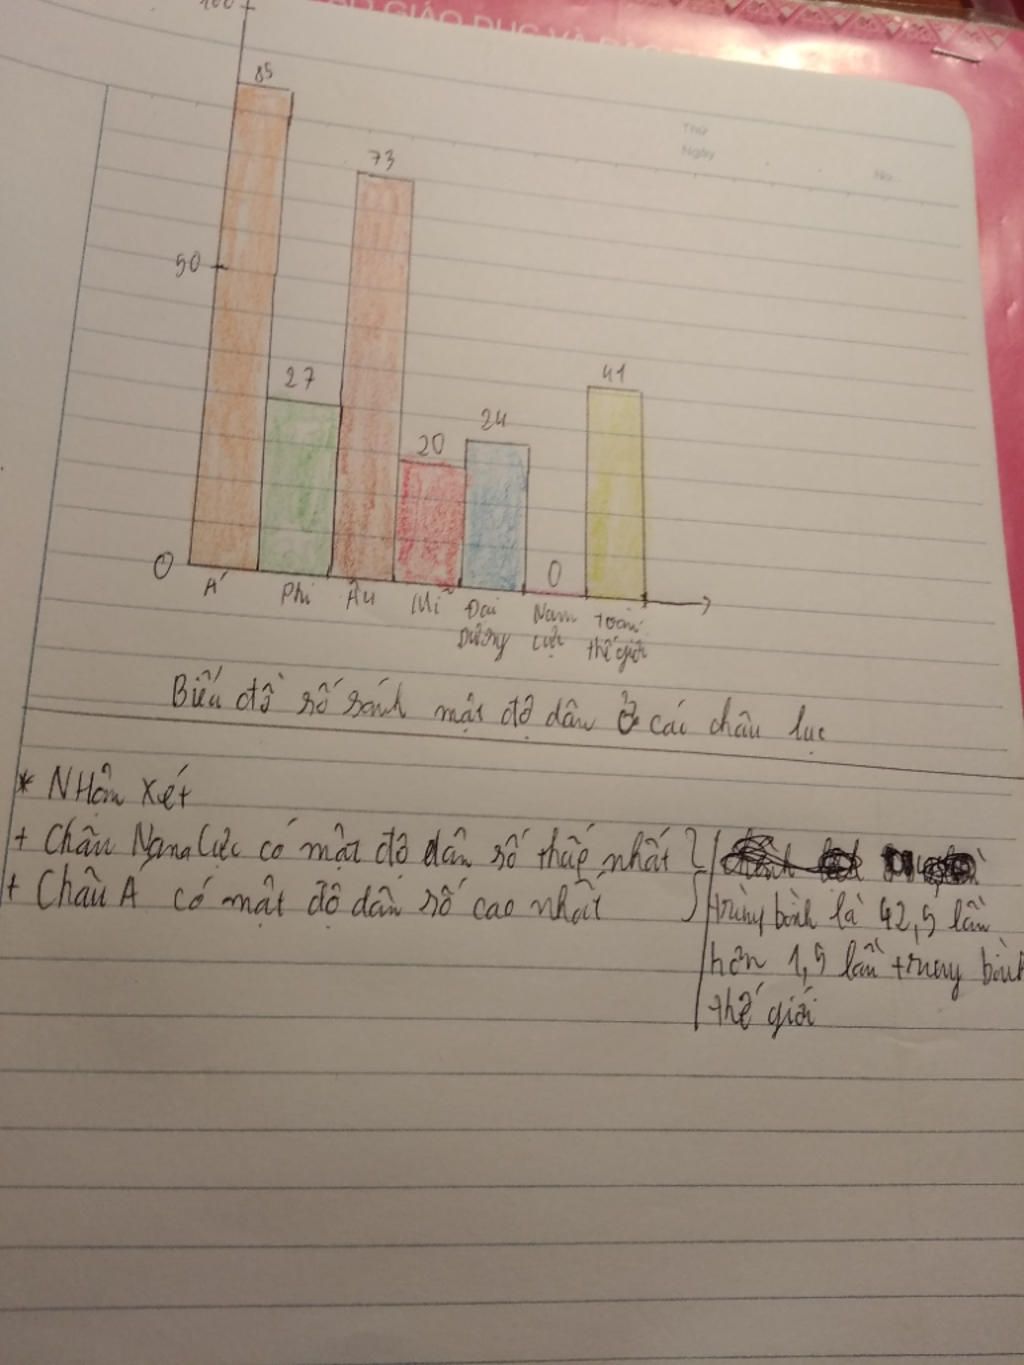 SỞ GIÁO DỤC VÀ ĐÀO
100
Thứ
Ngày
No.
85
73
50
27
41
24
20
0
0
Á Phi Âu Mĩ Đại Dương Nam Cực Toàn thế giới
Biểu đồ số sánh mật độ dân ở các châu lục
* Nhận xét
+ Châu Nam Cực có mật độ dân số thấp nhất
+ Châu Á có mật độ dân số cao nhất
trung bình là 42,5 lần
hơn 1,5 lần trung bình
thế giới